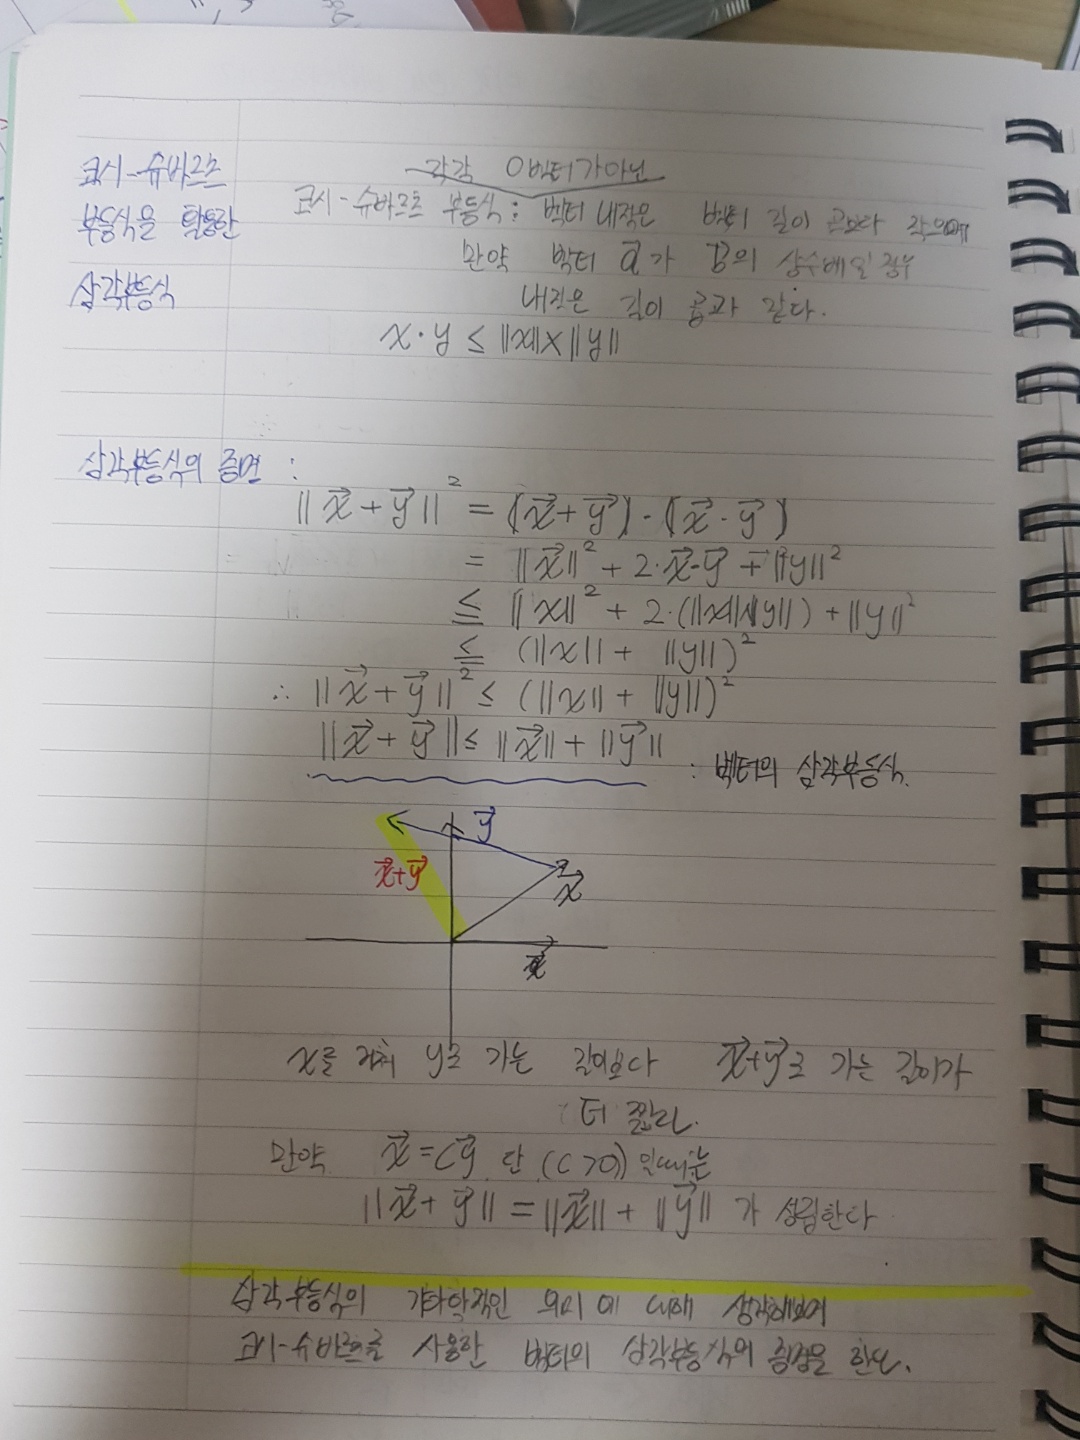 코시-슈바르츠
부등식을 활용한
삼각부등식
각각 0벡터가아닌
코시-슈바르츠 부등식: 벡터 내적은 벡터 길이 곱보다 작으며
만약 벡터 a⃗가 b⃗의 상수배일 경우
내적은 길이 곱과 같다.
x·y ≤ ||x||x||y||
삼각부등식의 증명 :
||x⃗+y⃗||² = (x⃗+y⃗)·(x⃗·y⃗)
= ||x⃗||² + 2·x⃗·y⃗ + ||y||²
≤ ||x||² + 2·(||x||||y||) + ||y||²
≤ (||x|| + ||y||)²
∴ ||x⃗+y⃗||² ≤ (||x|| + ||y||)²
||x⃗+y⃗|| ≤ ||x⃗|| + ||y⃗|| : 벡터의 삼각부등식.
y⃗
x⃗+y⃗
x⃗
x⃗
x를 거쳐 y로 가는 길이보다 x⃗+y⃗로 가는 길이가
더 짧다.
만약 x⃗=cy⃗ 단 (c>0) 일때는
||x⃗+y⃗|| = ||x⃗|| + ||y⃗|| 가 성립한다
삼각부등식의 기하학적인 의미에 대해 생각해보며
코시-슈바르츠를 사용한 벡터의 삼각부등식의 증명을 한다.